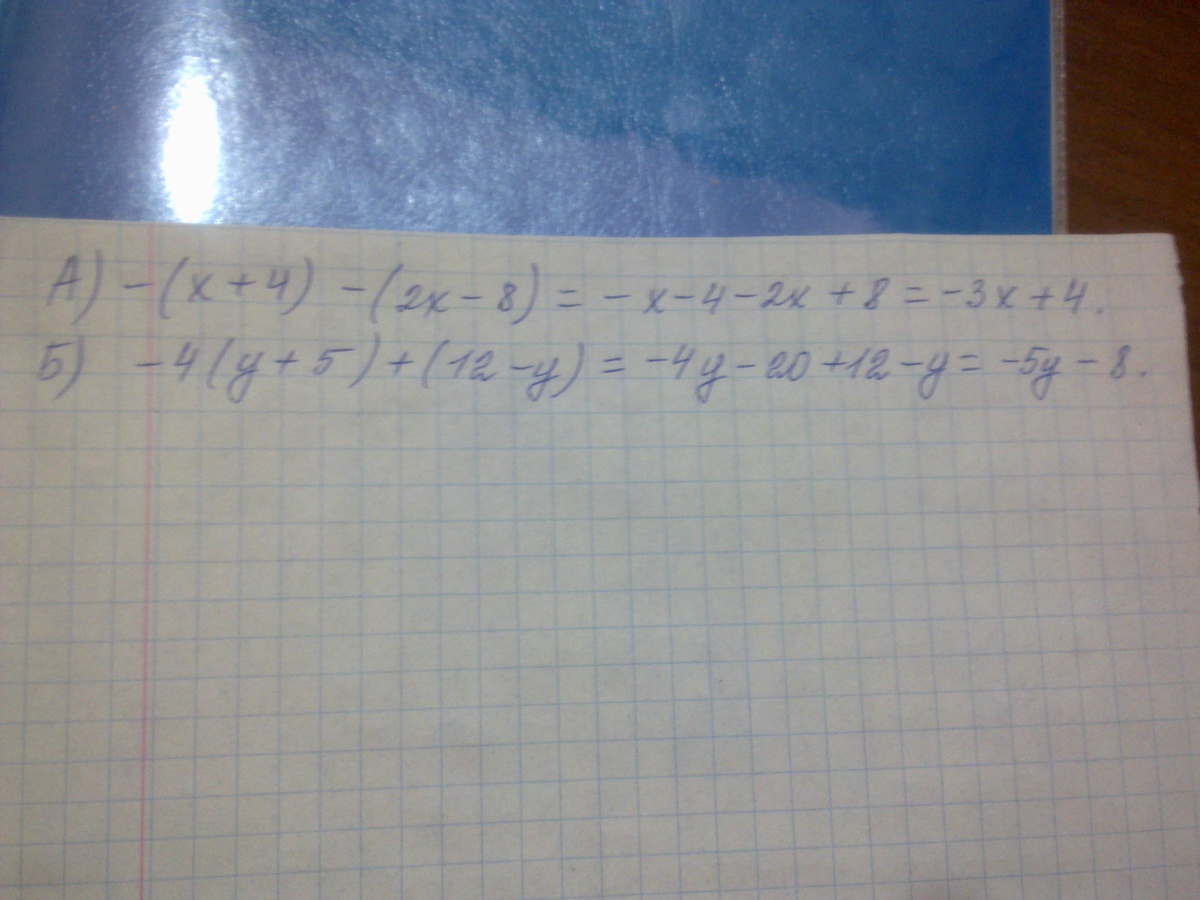 А) -(x+4) -(2x-8) = -x-4-2x+8 = -3x+4.
Б) -4(y+5)+(12-y) = -4y-20+12-y = -5y-8.